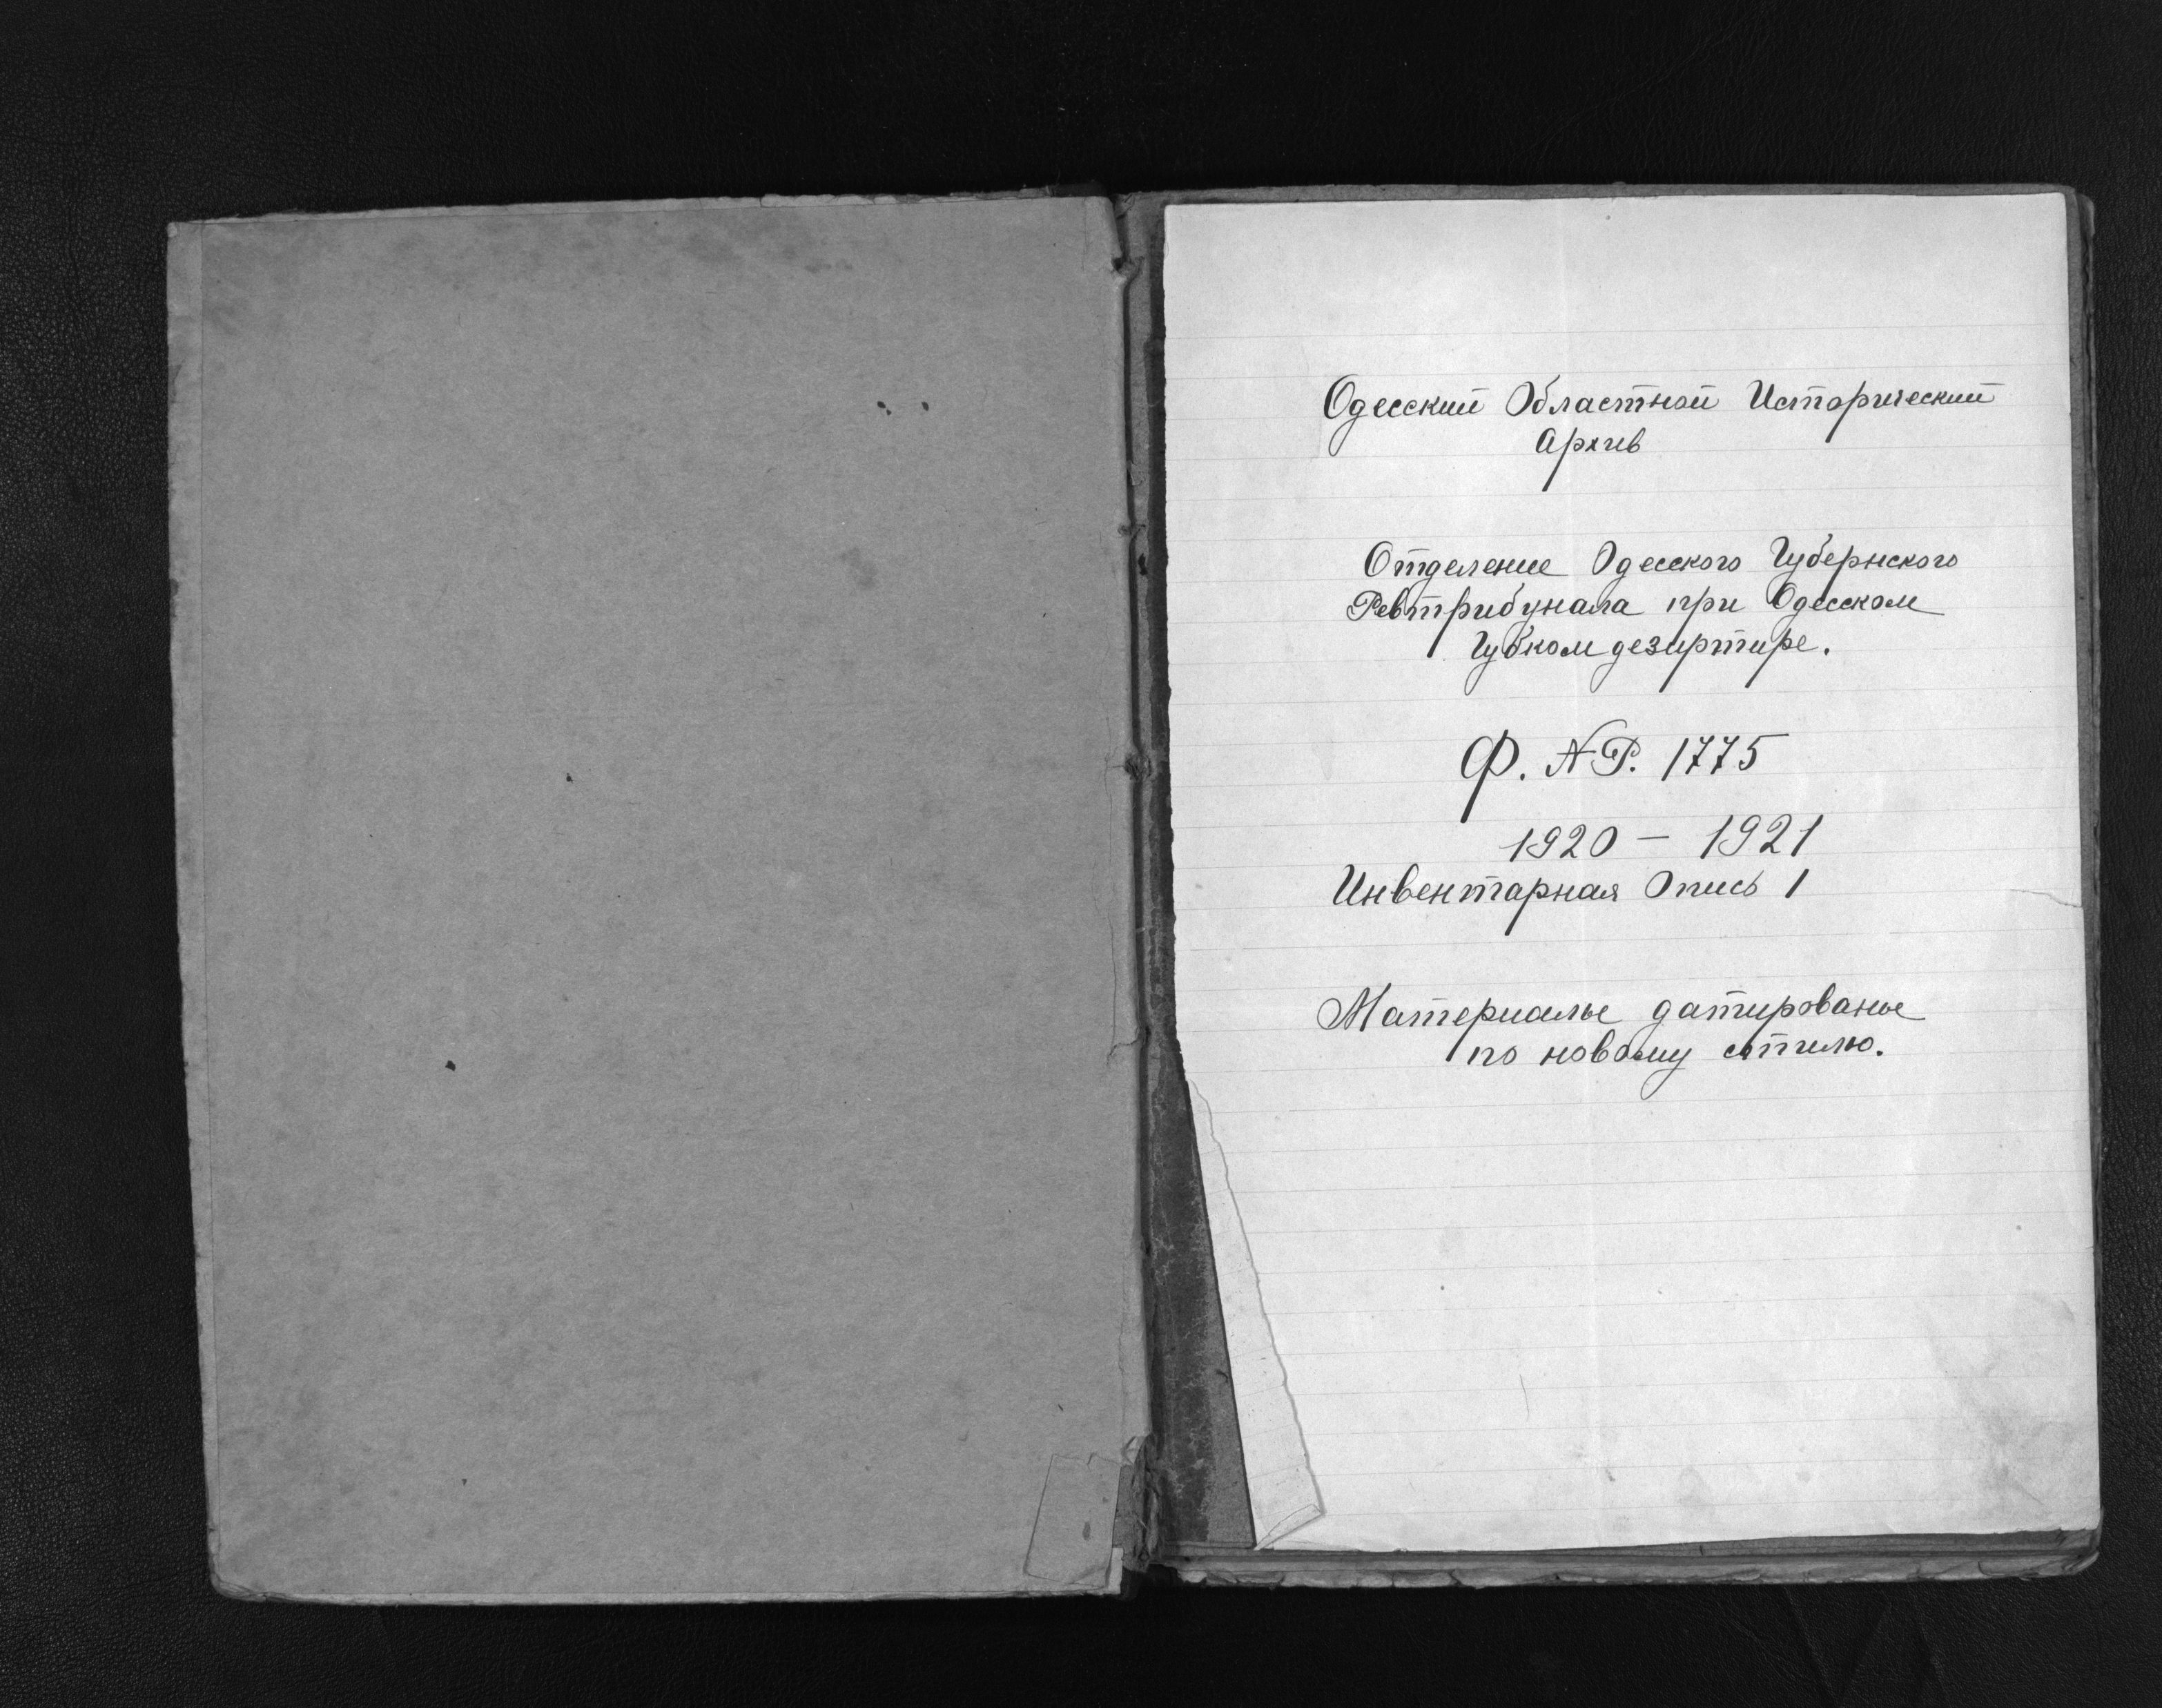 Одесский Областной Исторический
Архив
Отделение Одесского Губернского
Ревтрибунала при Одесском
Губкомдезиртире.
Ф. № Р. 1775
1920 — 1921
Инвентарная Опись 1
Материалы датированы
по новому стилю.